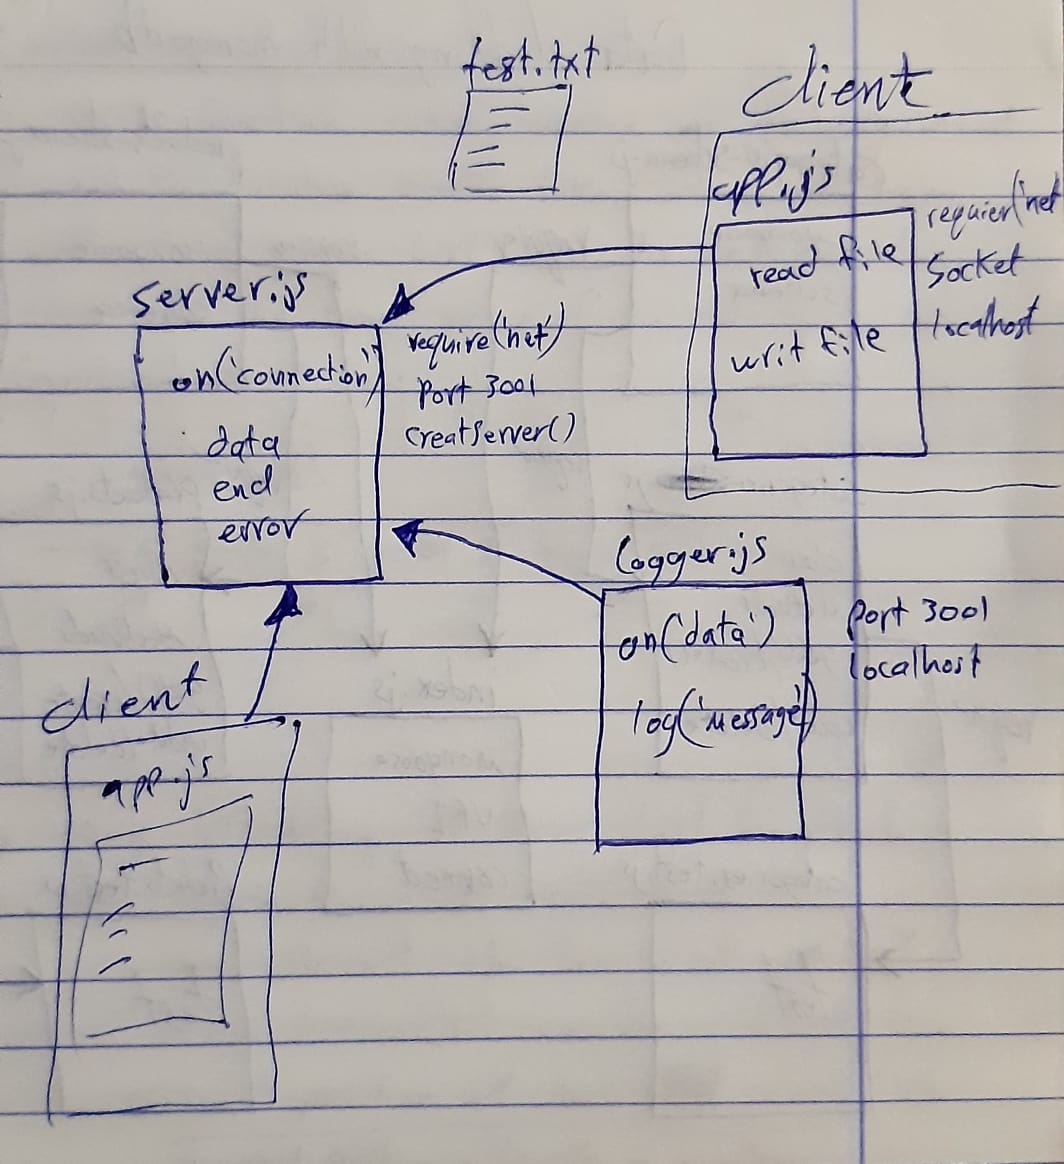 test.txt
client
app.js
read file
writ file
requier('net
Socket
localhost
server.js
on('connection')
data
end
error
require('net')
Port 3001
creatServer()
logger.js
on('data')
log('message')
Port 3001
localhost
client
app.js
index.js
mongoose